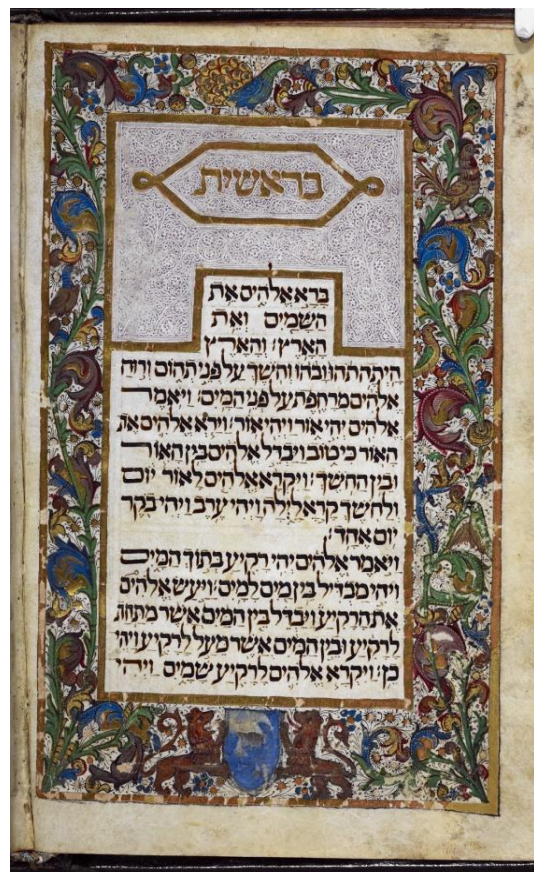 בראשית
בָּרָא אֱלֹהִים אֵת
הַשָּׁמַיִם וְאֵת
הָאָרֶץ׃ וְהָאָרֶץ
הָיְתָה תֹהוּ וָבֹהוּ וְחֹשֶׁךְ עַל פְּנֵי תְהוֹם וְרוּחַ
אֱלֹהִים מְרַחֶפֶת עַל פְּנֵי הַמָּיִם׃ וַיֹּאמֶר
אֱלֹהִים יְהִי אוֹר וַיְהִי אוֹר׃ וַיַּרְא אֱלֹהִים אֶת
הָאוֹר כִּי טוֹב וַיַּבְדֵּל אֱלֹהִים בֵּין הָאוֹר
וּבֵין הַחֹשֶׁךְ׃ וַיִּקְרָא אֱלֹהִים לָאוֹר יוֹם
וְלַחֹשֶׁךְ קָרָא לָיְלָה וַיְהִי עֶרֶב וַיְהִי בֹקֶר
יוֹם אֶחָד׃
וַיֹּאמֶר אֱלֹהִים יְהִי רָקִיעַ בְּתוֹךְ הַמָּיִם
וִיהִי מַבְדִּיל בֵּין מַיִם לָמָיִם׃ וַיַּעַשׂ אֱלֹהִים
אֶת הָרָקִיעַ וַיַּבְדֵּל בֵּין הַמַּיִם אֲשֶׁר מִתַּחַת
לָרָקִיעַ וּבֵין הַמַּיִם אֲשֶׁר מֵעַל לָרָקִיעַ וַיְהִי
כֵן׃ וַיִּקְרָא אֱלֹהִים לָרָקִיעַ שָׁמָיִם וַיְהִי